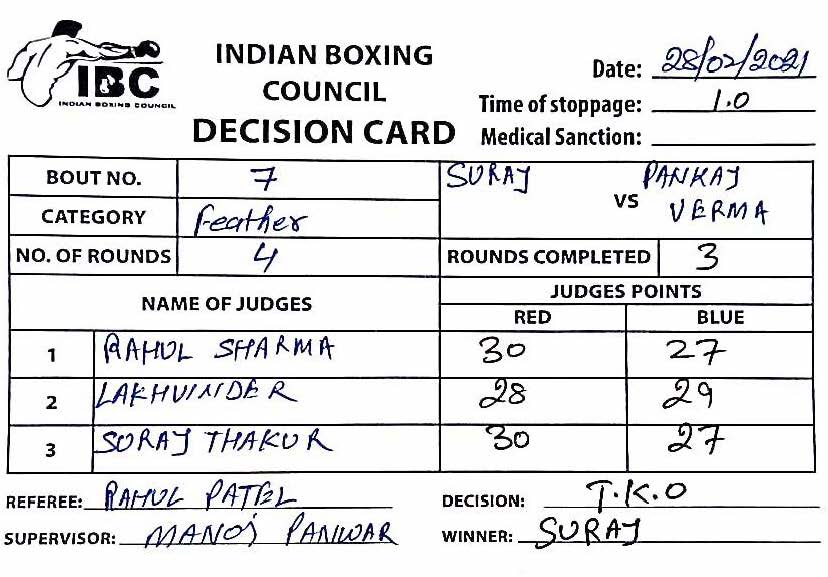 IBC
INDIAN BOXING COUNCIL
INDIAN BOXING
COUNCIL
DECISION CARD
Date: 28/02/2021
Time of stoppage: 1.0
Medical Sanction:
BOUT NO. 7
SURAJ VS PANKAJ VERMA
CATEGORY Feather
NO. OF ROUNDS 4 ROUNDS COMPLETED 3
NAME OF JUDGES JUDGES POINTS
RED BLUE
1 RAHUL SHARMA 30 27
2 LAKHUINDER 28 29
3 SURAJ THAKUR 30 27
REFEREE: RAHUL PATEL DECISION: T.K.O
SUPERVISOR: MANOJ PANWAR WINNER: SURAJ